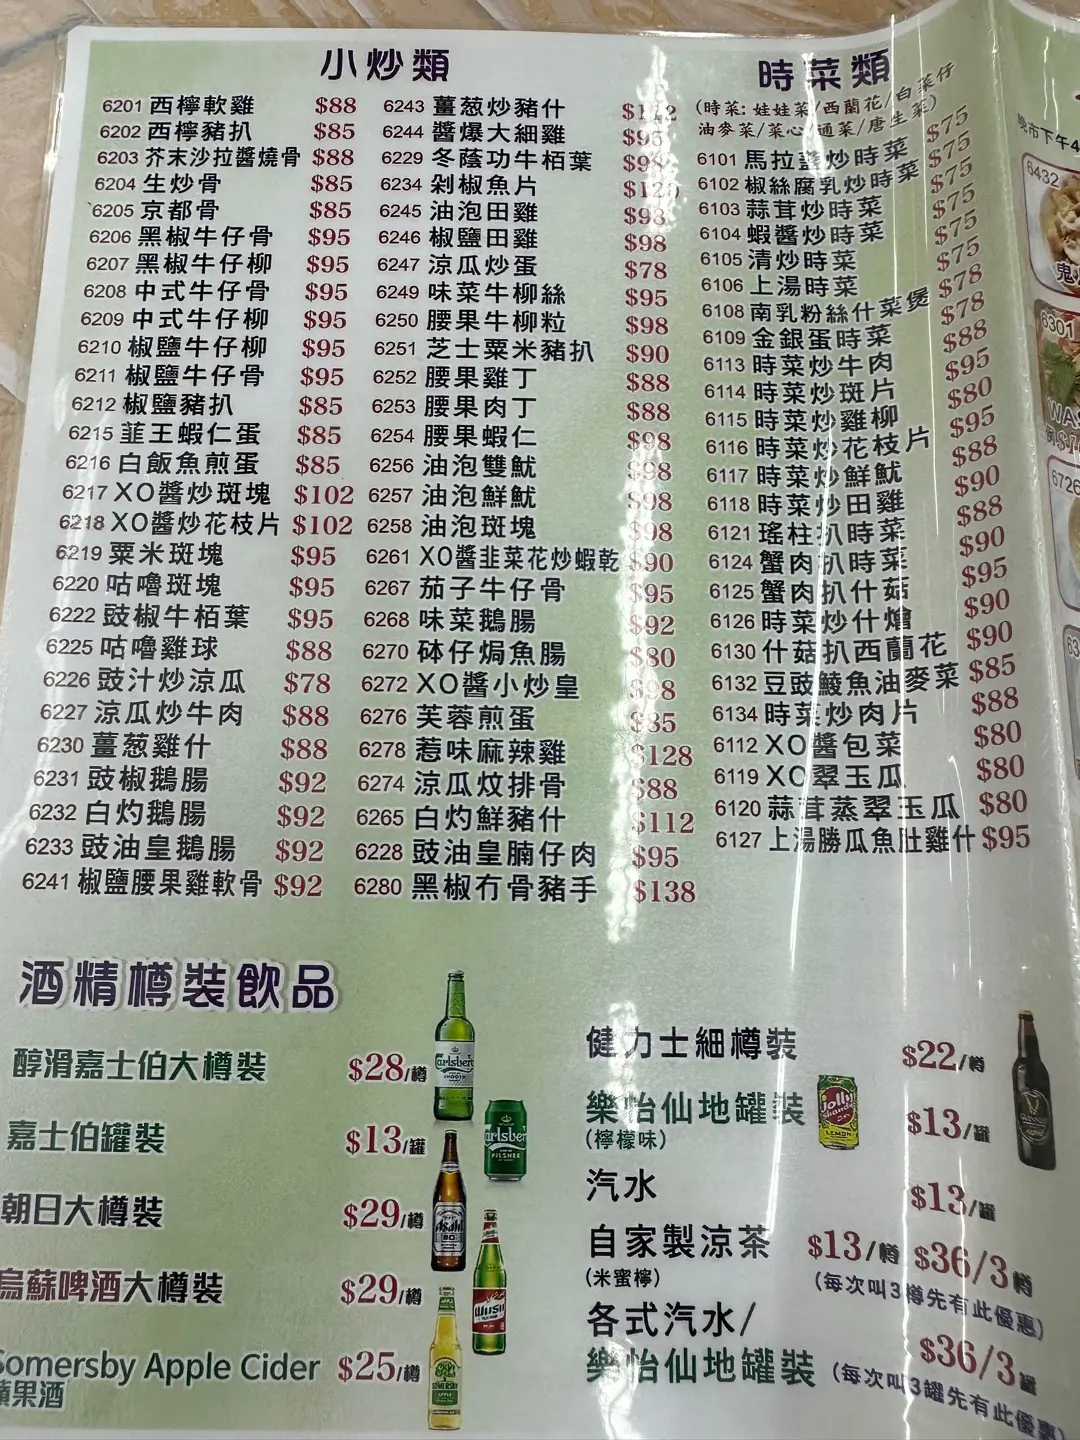 小炒類
6201 西檸軟雞 $88
6202 西檸豬扒 $85
6203 芥末沙拉醬燒骨 $88
6204 生炒骨 $85
6205 京都骨 $85
6206 黑椒牛仔骨 $95
6207 黑椒牛仔柳 $95
6208 中式牛仔骨 $95
6209 中式牛仔柳 $95
6210 椒鹽牛仔柳 $95
6211 椒鹽牛仔骨 $95
6212 椒鹽豬扒 $85
6215 韮王蝦仁蛋 $85
6216 白飯魚煎蛋 $85
6217 XO醬炒斑塊 $102
6218 XO醬炒花枝片 $102
6219 粟米斑塊 $95
6220 咕嚕斑塊 $95
6222 豉椒牛栢葉 $95
6225 咕嚕雞球 $88
6226 豉汁炒涼瓜 $78
6227 涼瓜炒牛肉 $88
6230 薑葱雞什 $88
6231 豉椒鵝腸 $92
6232 白灼鵝腸 $92
6233 豉油皇鵝腸 $92
6241 椒鹽腰果雞軟骨 $92
6243 薑葱炒豬什 $112
6244 醬爆大細雞 $95
6229 冬蔭功牛栢葉 $98
6234 剁椒魚片
6245 油泡田雞 $98
6246 椒鹽田雞 $98
6247 涼瓜炒蛋 $78
6249 味菜牛柳絲 $95
6250 腰果牛柳粒 $98
6251 芝士粟米豬扒 $90
6252 腰果雞丁 $88
6253 腰果肉丁 $88
6254 腰果蝦仁 $98
6256 油泡雙魷 $98
6257 油泡鮮魷 $98
6258 油泡斑塊 $98
6261 XO醬韭菜花炒蝦乾 $90
6267 茄子牛仔骨 $95
6268 味菜鵝腸 $92
6270 砵仔焗魚腸 $80
6272 XO醬小炒皇 $98
6276 芙蓉煎蛋 $85
6278 惹味麻辣雞 $128
6274 涼瓜炆排骨 $88
6265 白灼鮮豬什 $112
6228 豉油皇腩仔肉 $95
6280 黑椒冇骨豬手 $138
時菜類
(時菜: 娃娃菜/西蘭花/白菜仔
油麥菜/菜心/通菜/唐生菜)
6101 馬拉盞炒時菜 $75
6102 椒絲腐乳炒時菜 $75
6103 蒜茸炒時菜 $75
6104 蝦醬炒時菜 $75
6105 清炒時菜 $75
6106 上湯時菜 $75
6108 南乳粉絲什菜煲 $78
6109 金銀蛋時菜 $78
6113 時菜炒牛肉 $88
6114 時菜炒斑片 $95
6115 時菜炒雞柳 $80
6116 時菜炒花枝片 $95
6117 時菜炒鮮魷 $88
6118 時菜炒田雞 $90
6121 瑤柱扒時菜 $88
6124 蟹肉扒時菜 $90
6125 蟹肉扒什菇 $95
6126 時菜炒什燴 $90
6130 什菇扒西蘭花 $90
6132 豆豉鯪魚油麥菜 $85
6134 時菜炒肉片 $88
6112 XO醬包菜 $80
6119 XO翠玉瓜 $80
6120 蒜茸蒸翠玉瓜 $80
6127 上湯勝瓜魚肚雞什 $95
晚市下午4
6432
6301
酒精樽裝飲品
醇滑嘉士伯大樽裝 $28/樽
嘉士伯罐裝 $13/罐
朝日大樽裝 $29/樽
烏蘇啤酒大樽裝 $29/樽
Somersby Apple Cider $25/樽
蘋果酒
健力士細樽裝 $22/樽
樂怡仙地罐裝 $13/罐
(檸檬味)
汽水 $13/罐
自家製涼茶 $13/樽 $36/3樽
(米蜜檸) (每次叫3樽先有此優惠)
各式汽水/
樂怡仙地罐裝 $36/3罐
(每次叫3罐先有此優惠)